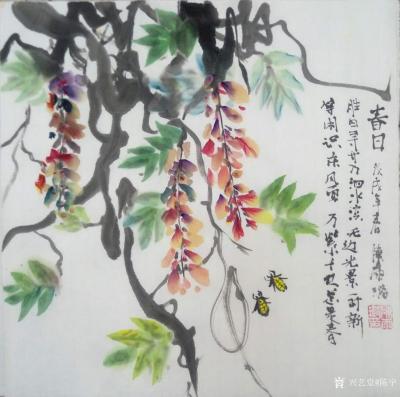 春日
戊戌年春日陈
胜日寻芳泗水滨无边光景一时新
等闲识东风面万紫千红总是春
兴艺堂@陈宇